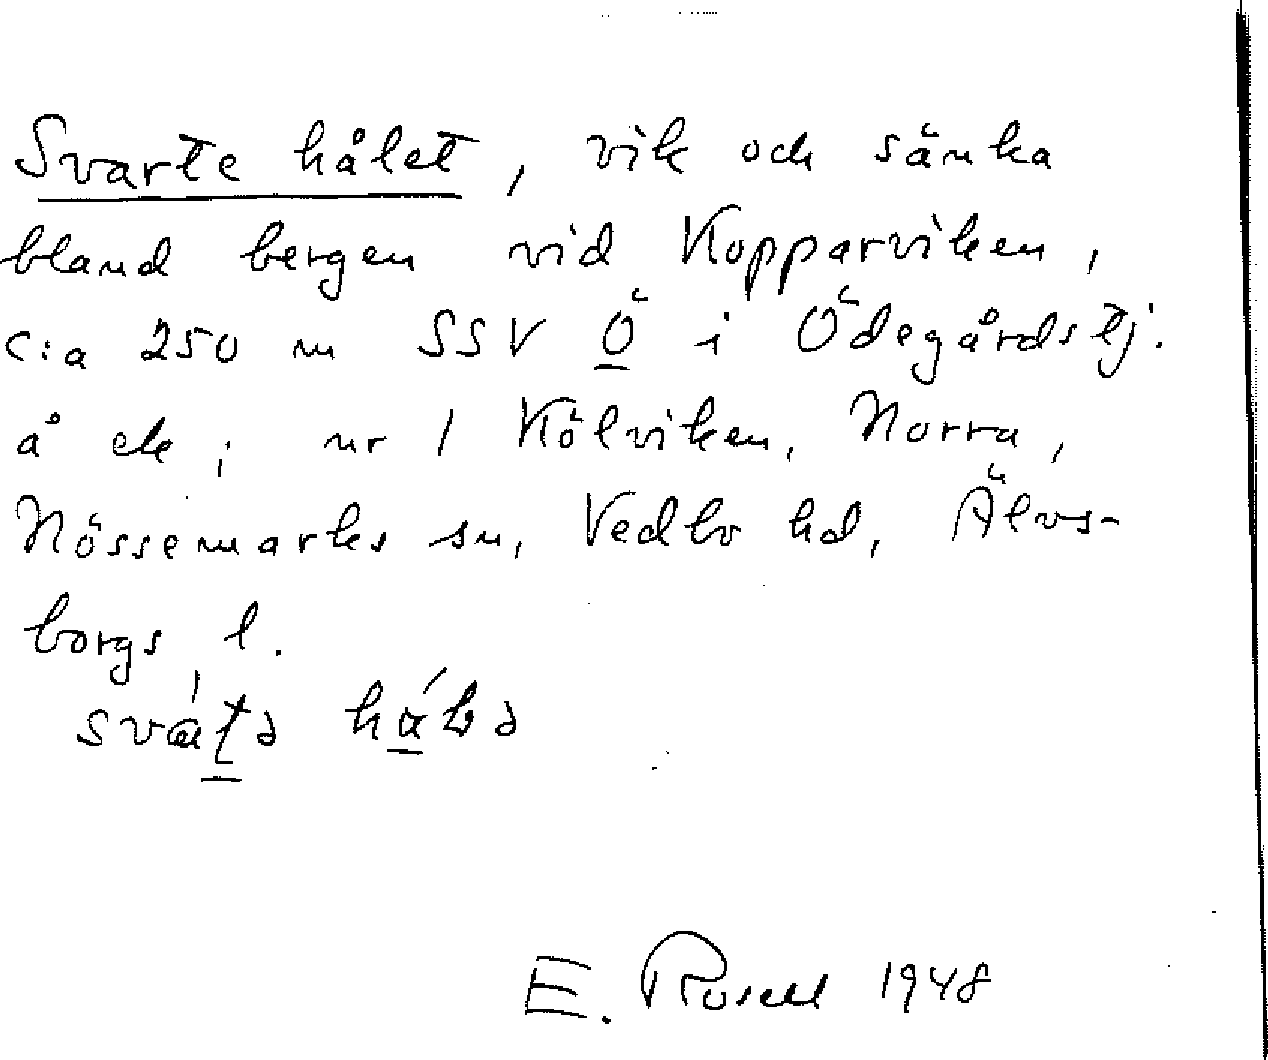 Svarte hålet, vik och sänka
bland bergen vid Kopparviken,
c:a 250 m SSV Ö i Ödegårdstj.
å ek; nr 1 Kölviken, Norra,
Nössemarks sn, Vedbo hd, Älvs-
borgs l.
E. Rosell 1948